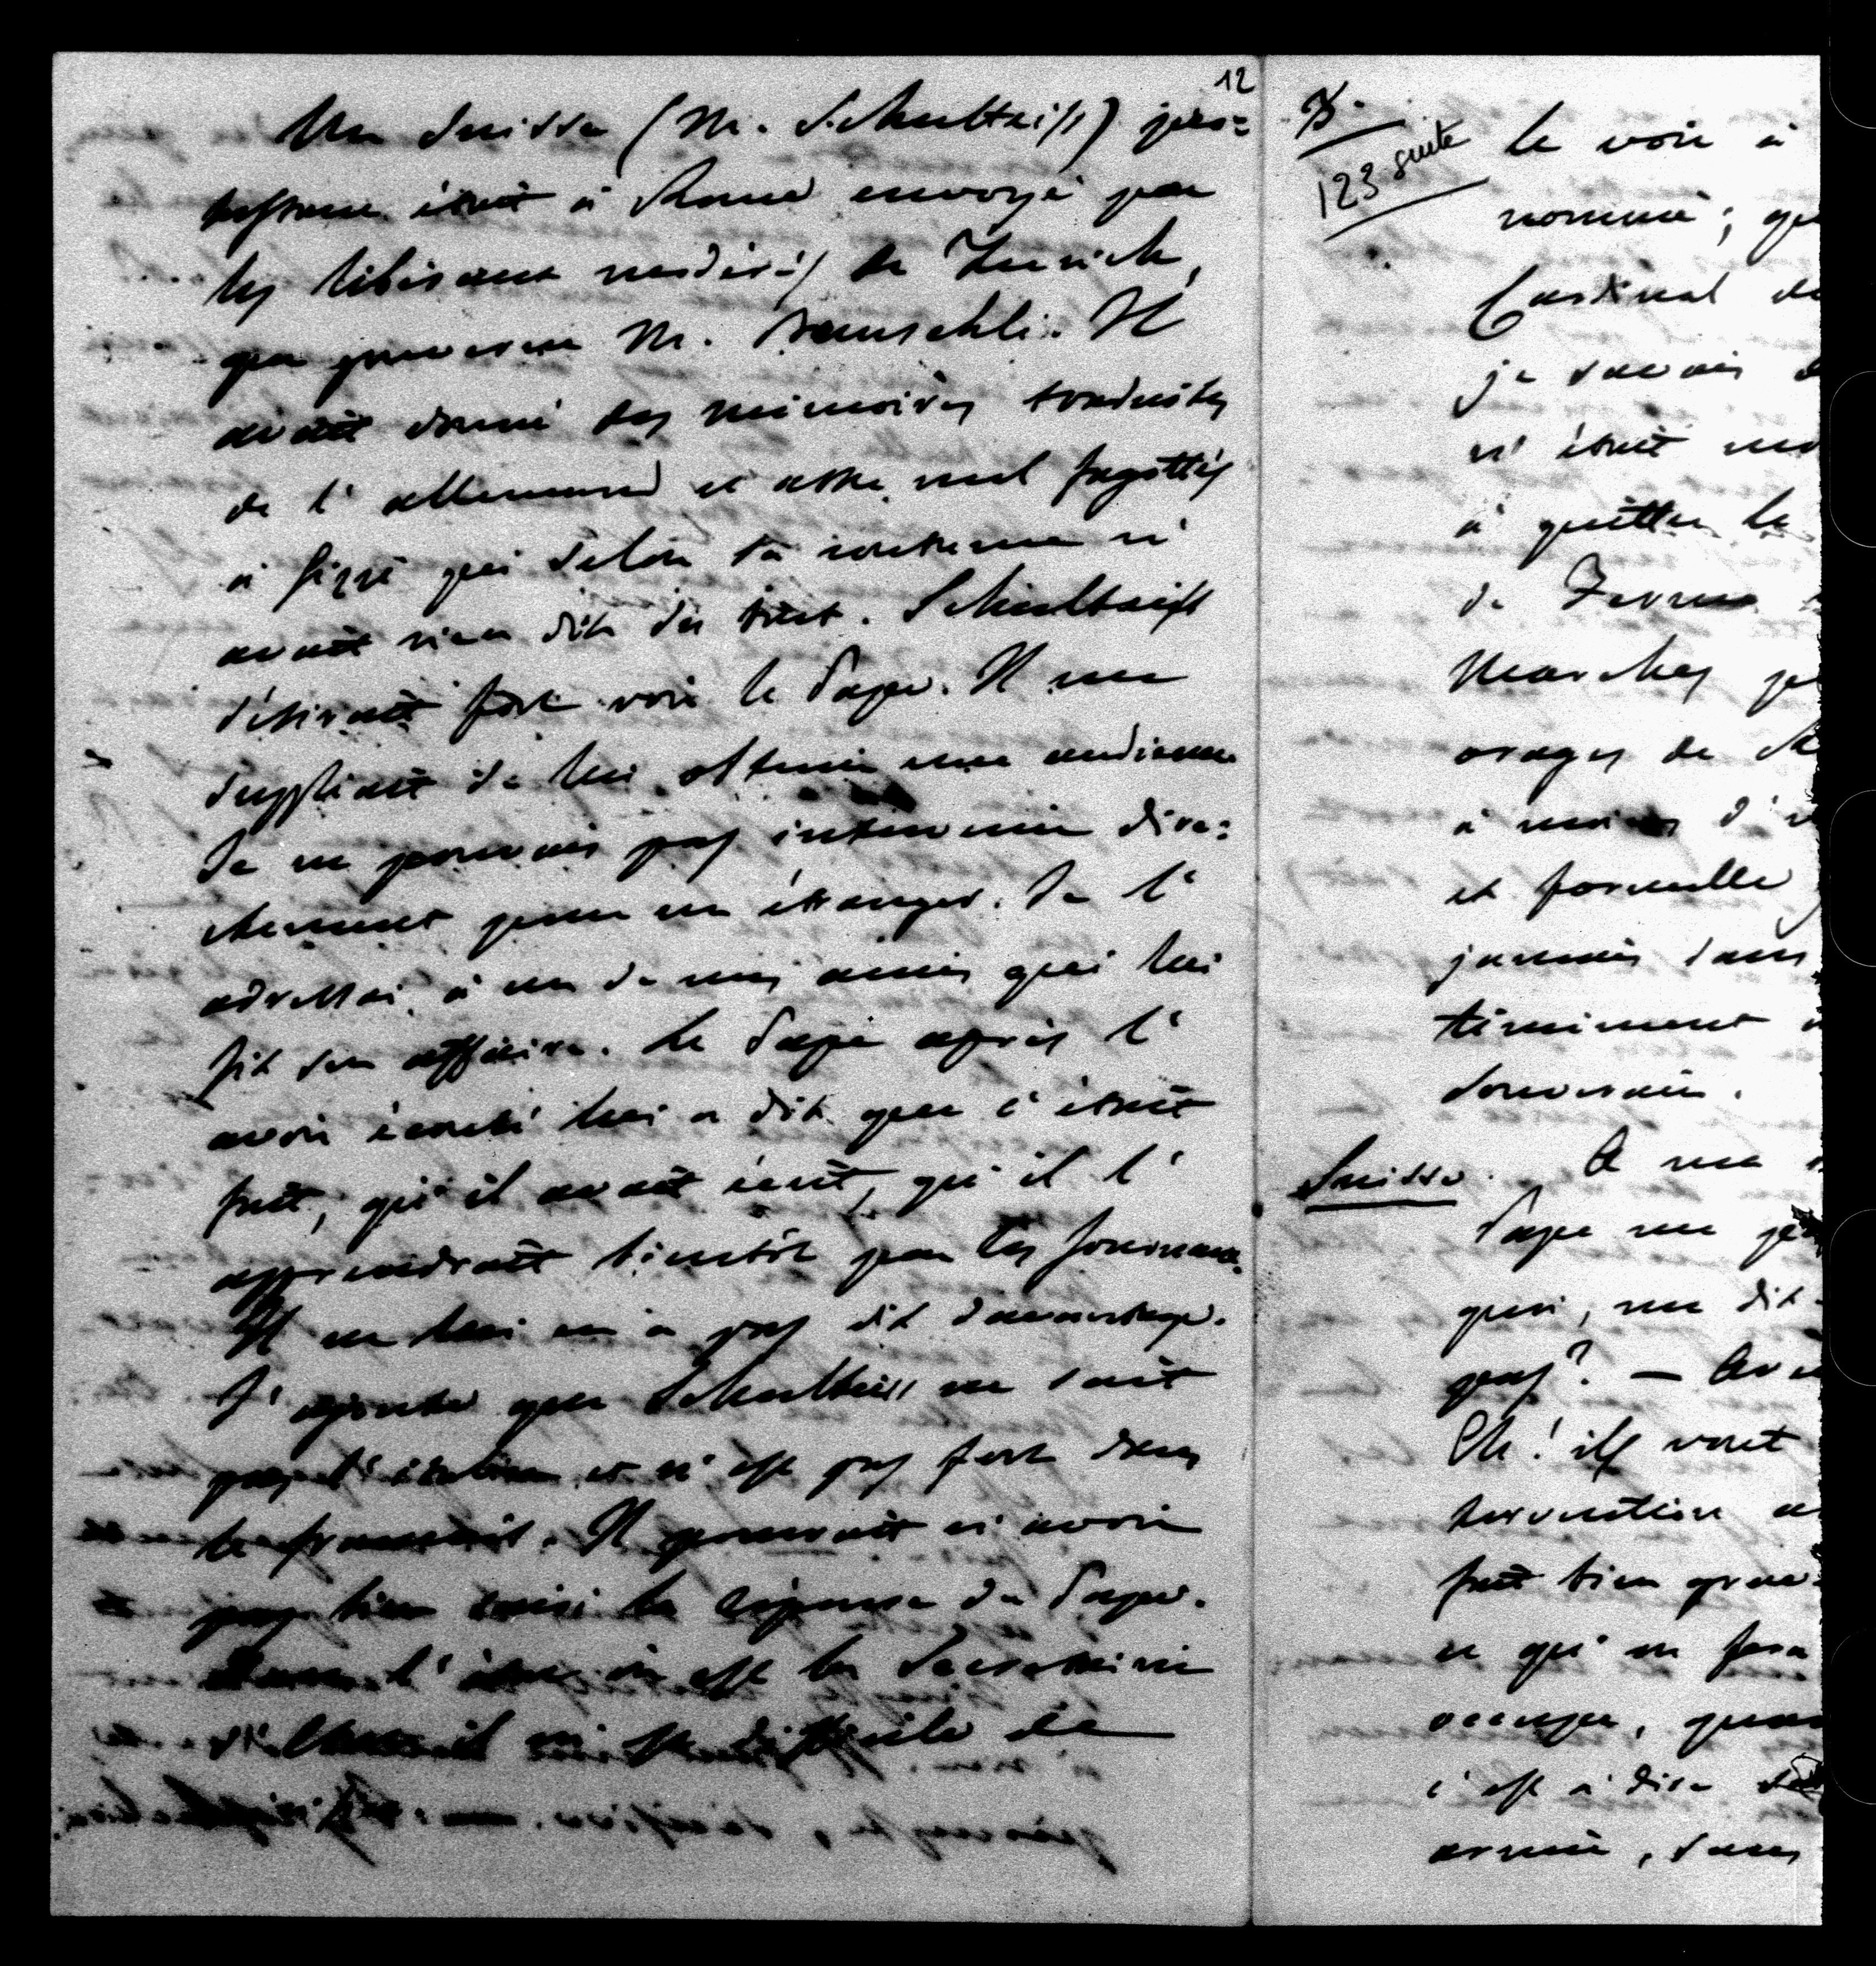 12
Un Suisse (M. Schultheiss) pro=
testant était à Rome envoyé par
les libéraux modérés de Zurich,
que gouverne M. Bluntschli. Il
avait donné des mémoires traduites
de l'allemand et assez mal fagottés
à Gizzi qui selon sa coutume n'
avait rien dit du tout. Schultheiss
désirait fort voir le Pape. Il me
suppliait de lui obtenir une audience.
Je ne pouvais pas intervenir dire=
ctement pour un étranger. Je l'
adressai à un de mes amis qui lui
fit son affaire. Le Pape après l'
avoir écouté lui a dit que c'était
fait, qu'il avait écrit, qu'il l'
apprendrait bientôt par les journaux.
Il ne lui en a pas dit davantage.
J'ajoute que Schultheiss ne sait
pas l'italien et n'est pas fort dans
le français. Il pourrait n'avoir
pas bien saisi la réponse du Pape.
Dans l'état où est la Secrétairerie
d'Etat il m'est difficile de
123 suite
le voir à
nommé; qu
Cardinal de
je savais d
n'était no
à quitter le
de Fermo
Marches p
orages de
à moins d'
et formelle
jamais dans
timiment
souverain.
Suisse. A ma
Pape me p
quoi, me dit
pas? — Av
Eh! ils vont
tervention a
fait bien grav
ce qu'on fera
occupe, quan
c'est à dire
armée, sans